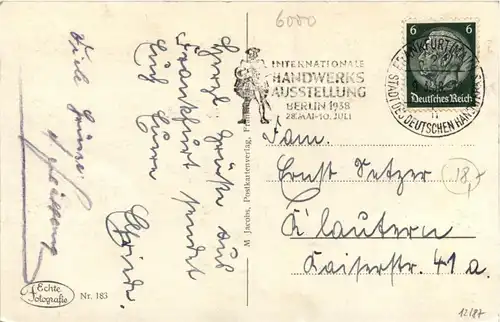 6000
Herzl. Grüße aus
Frankfurt sendet
Euch Eure
Elfriede.
Viele Grüsse
Echte
Fotografie
Nr. 183
M. Jacobs, Postkartenverlag,
INTERNATIONALE
HANDWERKS
AUSSTELLUNG
BERLIN 1938
28.MAI-10.JULI
FRANKFURT (MAIN)
STADT DES DEUTSCHEN HANDWERKS
6
6
Deutsches Reich
Fam.
Ernst Netzer
K'lautern
Kaiserstr. 41 a.
18,-
12/87